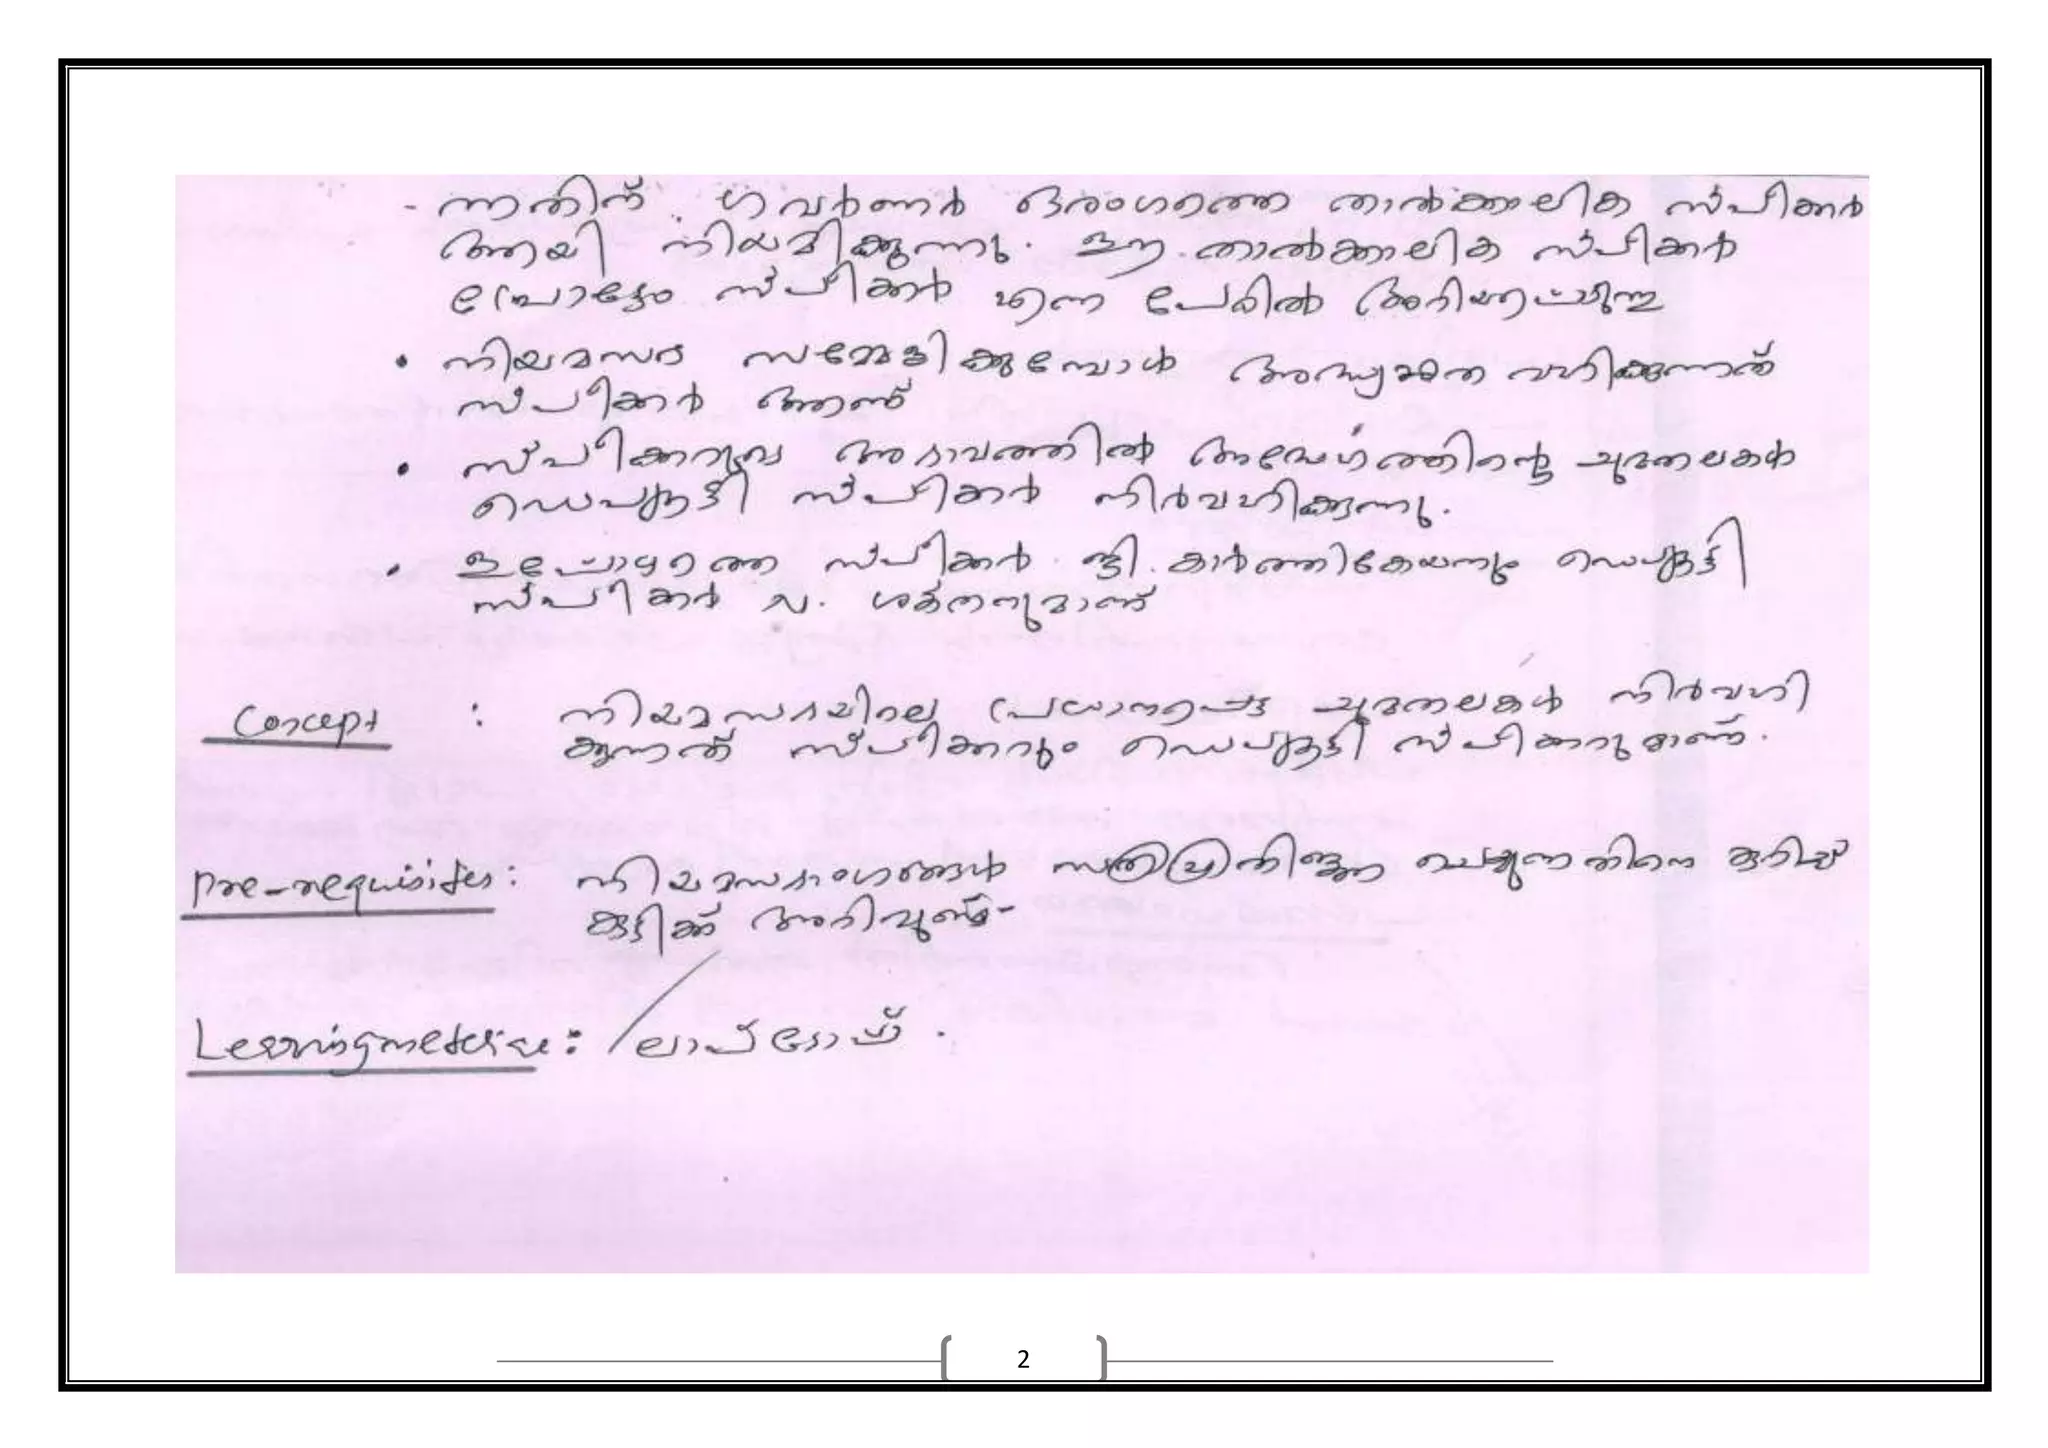 - ന്നതിന് ഗവർണർ ഒരംഗത്തെ താൽക്കാലിക സ്പീക്കർ
ആയി നിയമിക്കുന്നു. ഈ താൽക്കാലിക സ്പീക്കർ
പ്രോട്ടേം സ്പീക്കർ എന്ന പേരിൽ അറിയപ്പെടുന്നു
• നിയമസഭ സമ്മേളിക്കുമ്പോൾ അദ്ധ്യക്ഷത വഹിക്കുന്നത്
സ്പീക്കർ ആണ്
• സ്പീക്കറുടെ അഭാവത്തിൽ അദ്ദേഹത്തിന്റെ ചുമതലകൾ
ഡെപ്യൂട്ടി സ്പീക്കർ നിർവഹിക്കുന്നു.
• ഇപ്പോഴത്തെ സ്പീക്കർ ശ്രീ. കാർത്തികേയനും ഡെപ്യൂട്ടി
സ്പീക്കർ ശക്തനുമാണ്
Concept : നിയമസഭയിലെ പ്രധാനപ്പെട്ട ചുമതലകൾ നിർവഹി
ക്കുന്നത് സ്പീക്കറും ഡെപ്യൂട്ടി സ്പീക്കറുമാണ്.
Pre-requisites: നിയമസഭാംഗങ്ങൾ സത്യപ്രതിജ്ഞ ചെയ്യുന്നതിനെ കുറിച്ച്
കുട്ടിക്ക് അറിവുണ്ട്-
Learningmeterial: ലാപ്ടോപ്പ്.
2